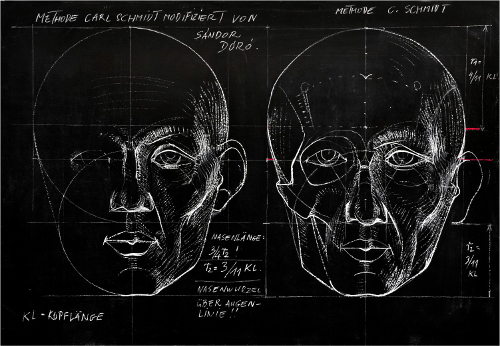 METHODE CARL SCHMIDT MODIFIZIERT VON
SÁNDOR
DÓRÓ.
METHODE C. SCHMIDT
KL.
NASENLÄNGE:
3/4 t2
t2 = 3/11 KL.
NASENWURZEL
ÜBER AUGEN-
LINIE!!
t2 =
3/11
KL
KL - KOPFLÄNGE